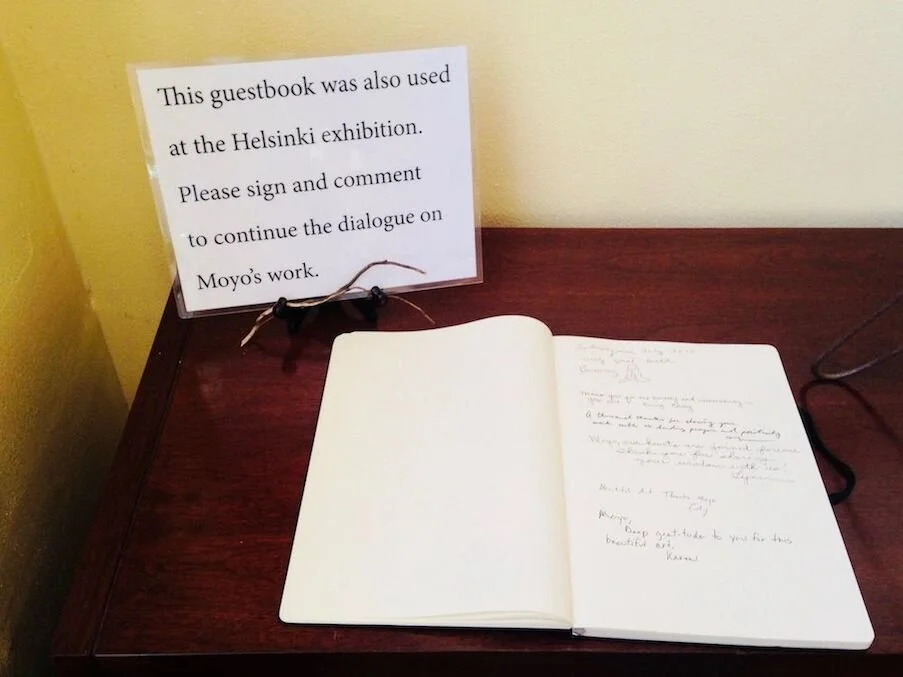 This guestbook was also used
at the Helsinki exhibition.
Please sign and comment
to continue the dialogue on
Moyo's work.
July
very good
Thank you for
you are
A thousand thanks for sharing your
work with us
and positivity
our hearts are joined forever
Thank you for sharing
your wisdom with us!
Beautiful Art Thanks Moyo
Moyo,
Deep gratitude to you for this
beautiful art.
Karen